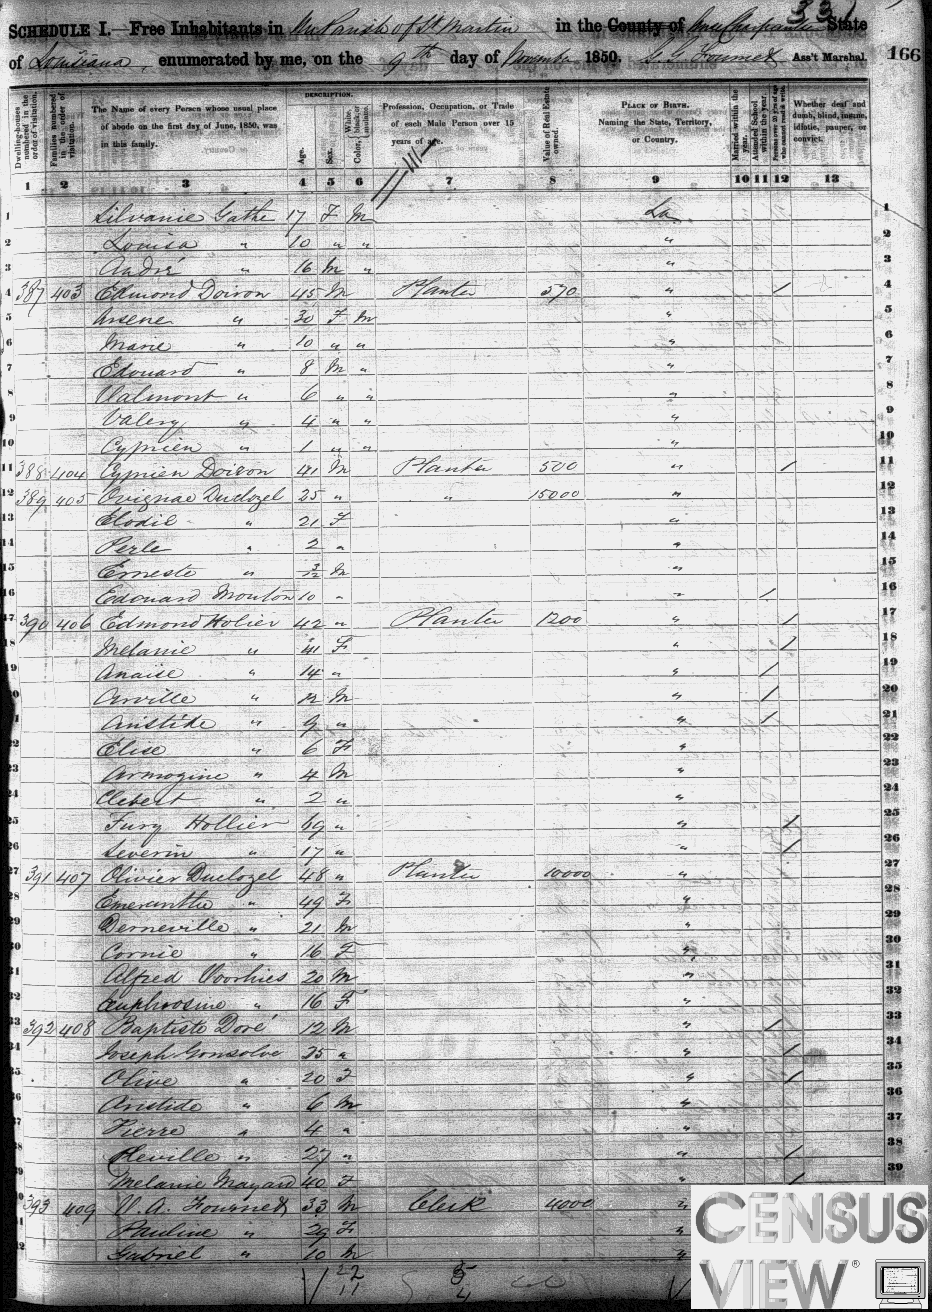 331
SCHEDULE I.—Free Inhabitants in the Parish of St Martin in the County of State
of Louisiana, enumerated by me, on the 9th day of November 1850. Ass't Marshal. 166
DESCRIPTION.
Dwelling-houses numbered in the order of visitation.
Families numbered in the order of visitation.
The Name of every Person whose usual place of abode on the first day of June, 1850, was in this family.
Age.
Sex.
Color, White, black or mulatto.
Profession, Occupation, or Trade of each Male Person over 15 years of age.
Value of Real Estate owned.
PLACE OF BIRTH. Naming the State, Territory, or Country.
Married within the year.
Attended School within the year.
Persons over 20 years of age who cannot read & write.
Whether deaf and dumb, blind, insane, idiotic, pauper, or convict.
1 2 3 4 5 6 7 8 9 10 11 12 13
1 Silvanie Gathe 17 F M La 1
2 Louisa " 10 " " " 2
3 André " 16 M " " 3
4 387 403 Edmond Doiron 45 M Planter 570 " / 4
5 Arsene " 30 F M " 5
6 Marie " 10 " " " 6
7 Edouard " 8 M " " 7
8 Valmont " 6 " " " 8
9 Valery " 4 " " " 9
10 Cyprien " 1 " " " 10
11 388 404 Cyprien Doiron 41 M Planter 500 " / 11
12 389 405 Duclozel 25 " " 15000 " 12
13 Elodie " 21 F " 13
14 Perle " 2 " " 14
15 Erneste " 3/12 M " 15
16 Edouard Mouton 10 " " / 16
17 390 406 Edmond Holier 42 " Planter 1200 " / 17
18 Melanie " 41 F " / 18
19 Anaise " 14 " " / 19
20 Arville " 12 M " / 20
21 Aristide " 9 " " / 21
22 Elise " 6 F " 22
23 Armogine " 4 M " 23
24 Clebert " 2 " " 24
25 Fury Hollier 69 " " / 25
26 Severin " 17 " " / 26
27 391 407 Olivier Duclozel 48 " Planter 10000 " 27
28 Emeranthe " 49 F " 28
29 Derneville " 21 M " 29
30 Cornie " 16 F " 30
31 Alfred Voorhies 20 M " 31
32 Euphrosine " 16 F " 32
33 392 408 Baptiste Doré 12 M " / 33
34 Joseph Gonsolve 25 " " / 34
35 Olive " 20 F " / 35
36 Aristide " 6 M " 36
37 Pierre " 4 " " 37
38 " 27 " " / 38
39 Melanie Mayard 40 F " / 39
393 409 V. A. Fournet 33 M Clerk 4000 "
Pauline " 29 F "
Gabriel " 10 M "
CENSUS
VIEW®